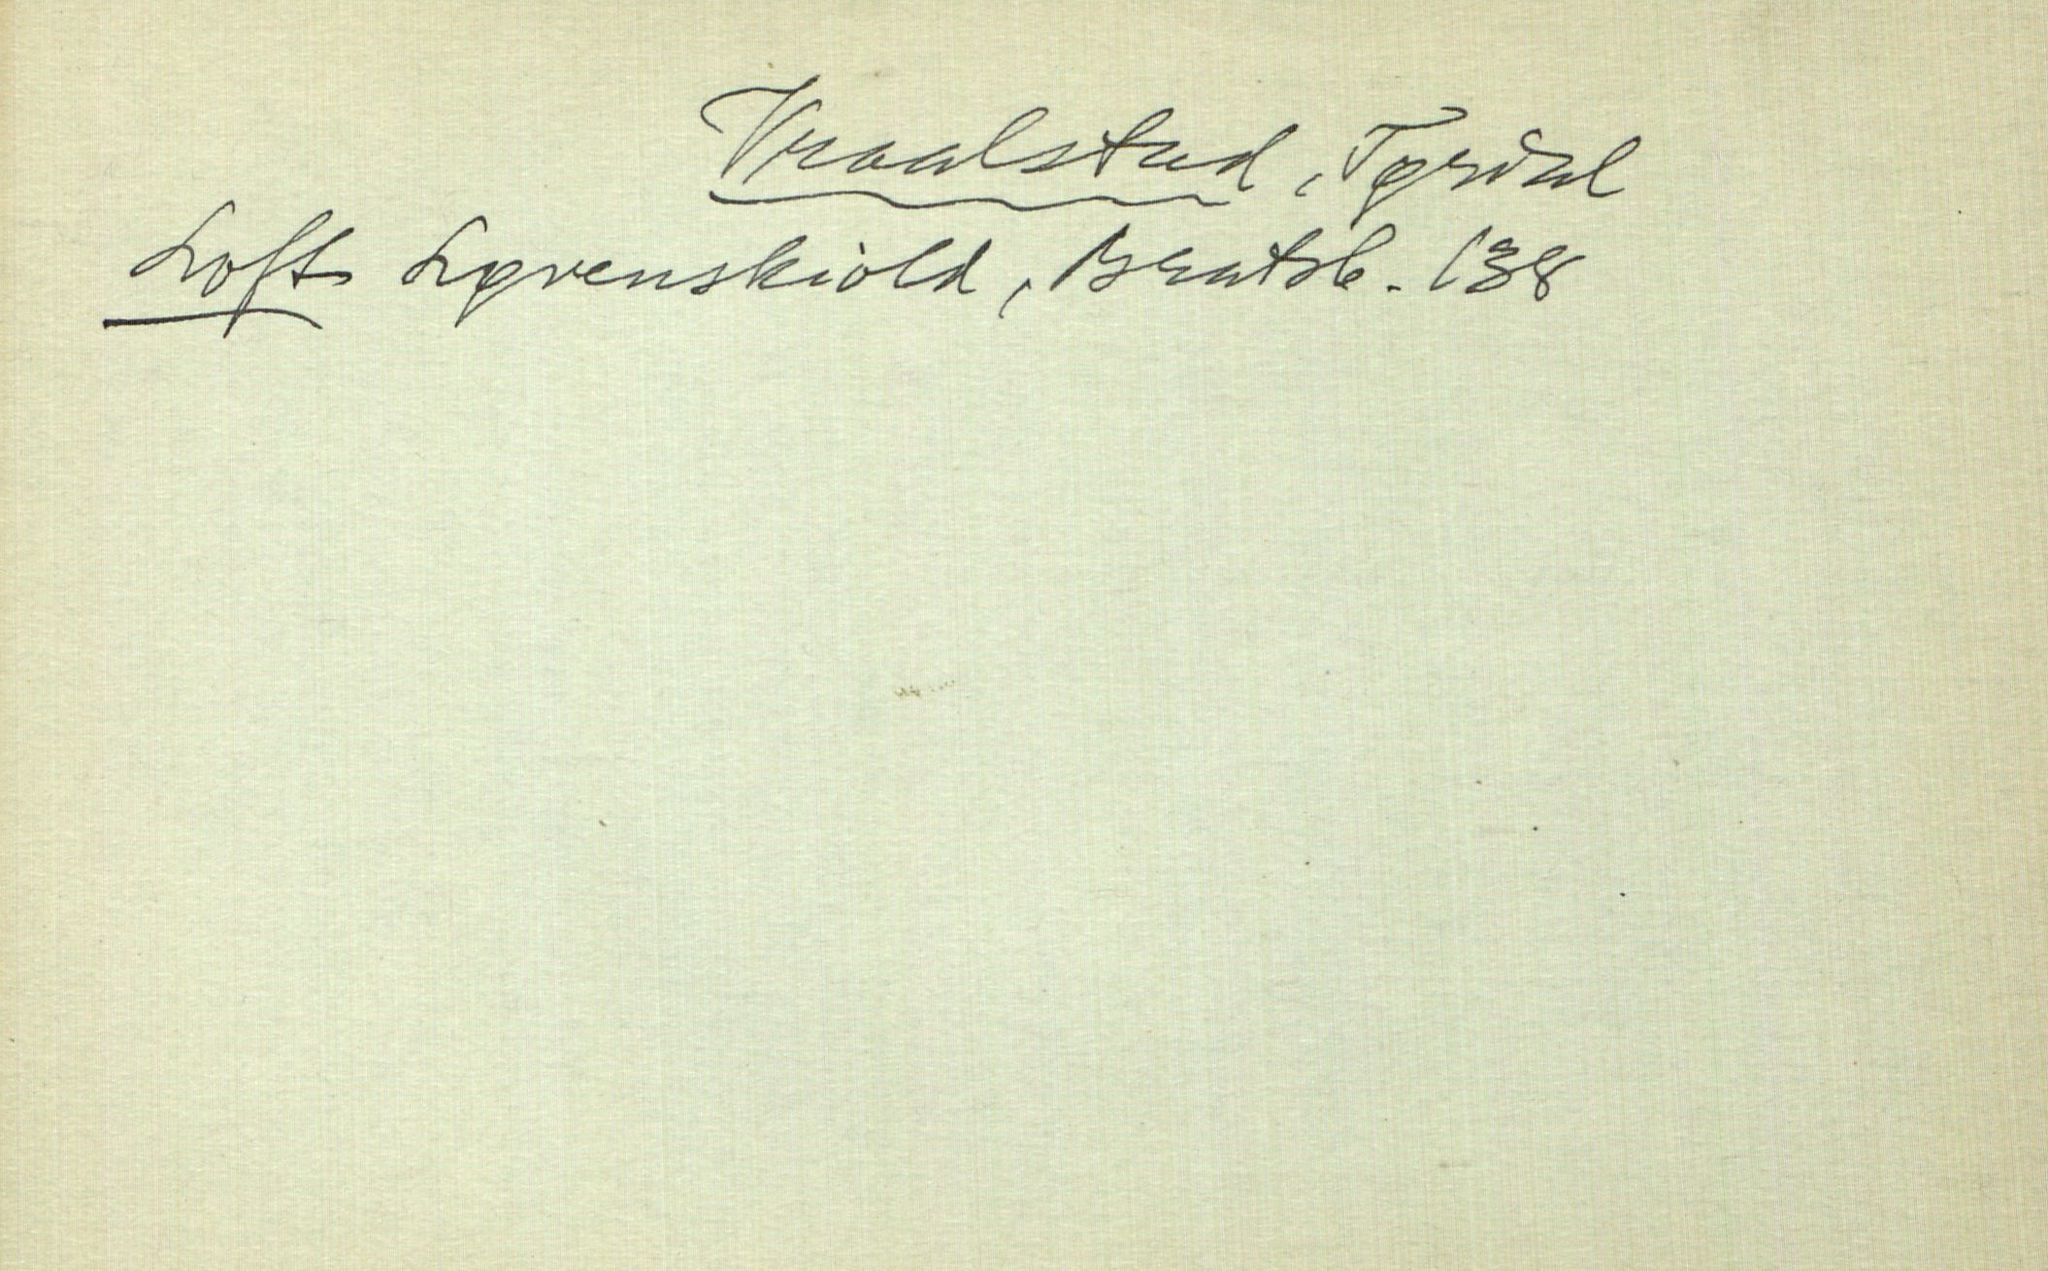 Vraalstad, Tørdal
Loft Løvenskiold, Bratsb. 138